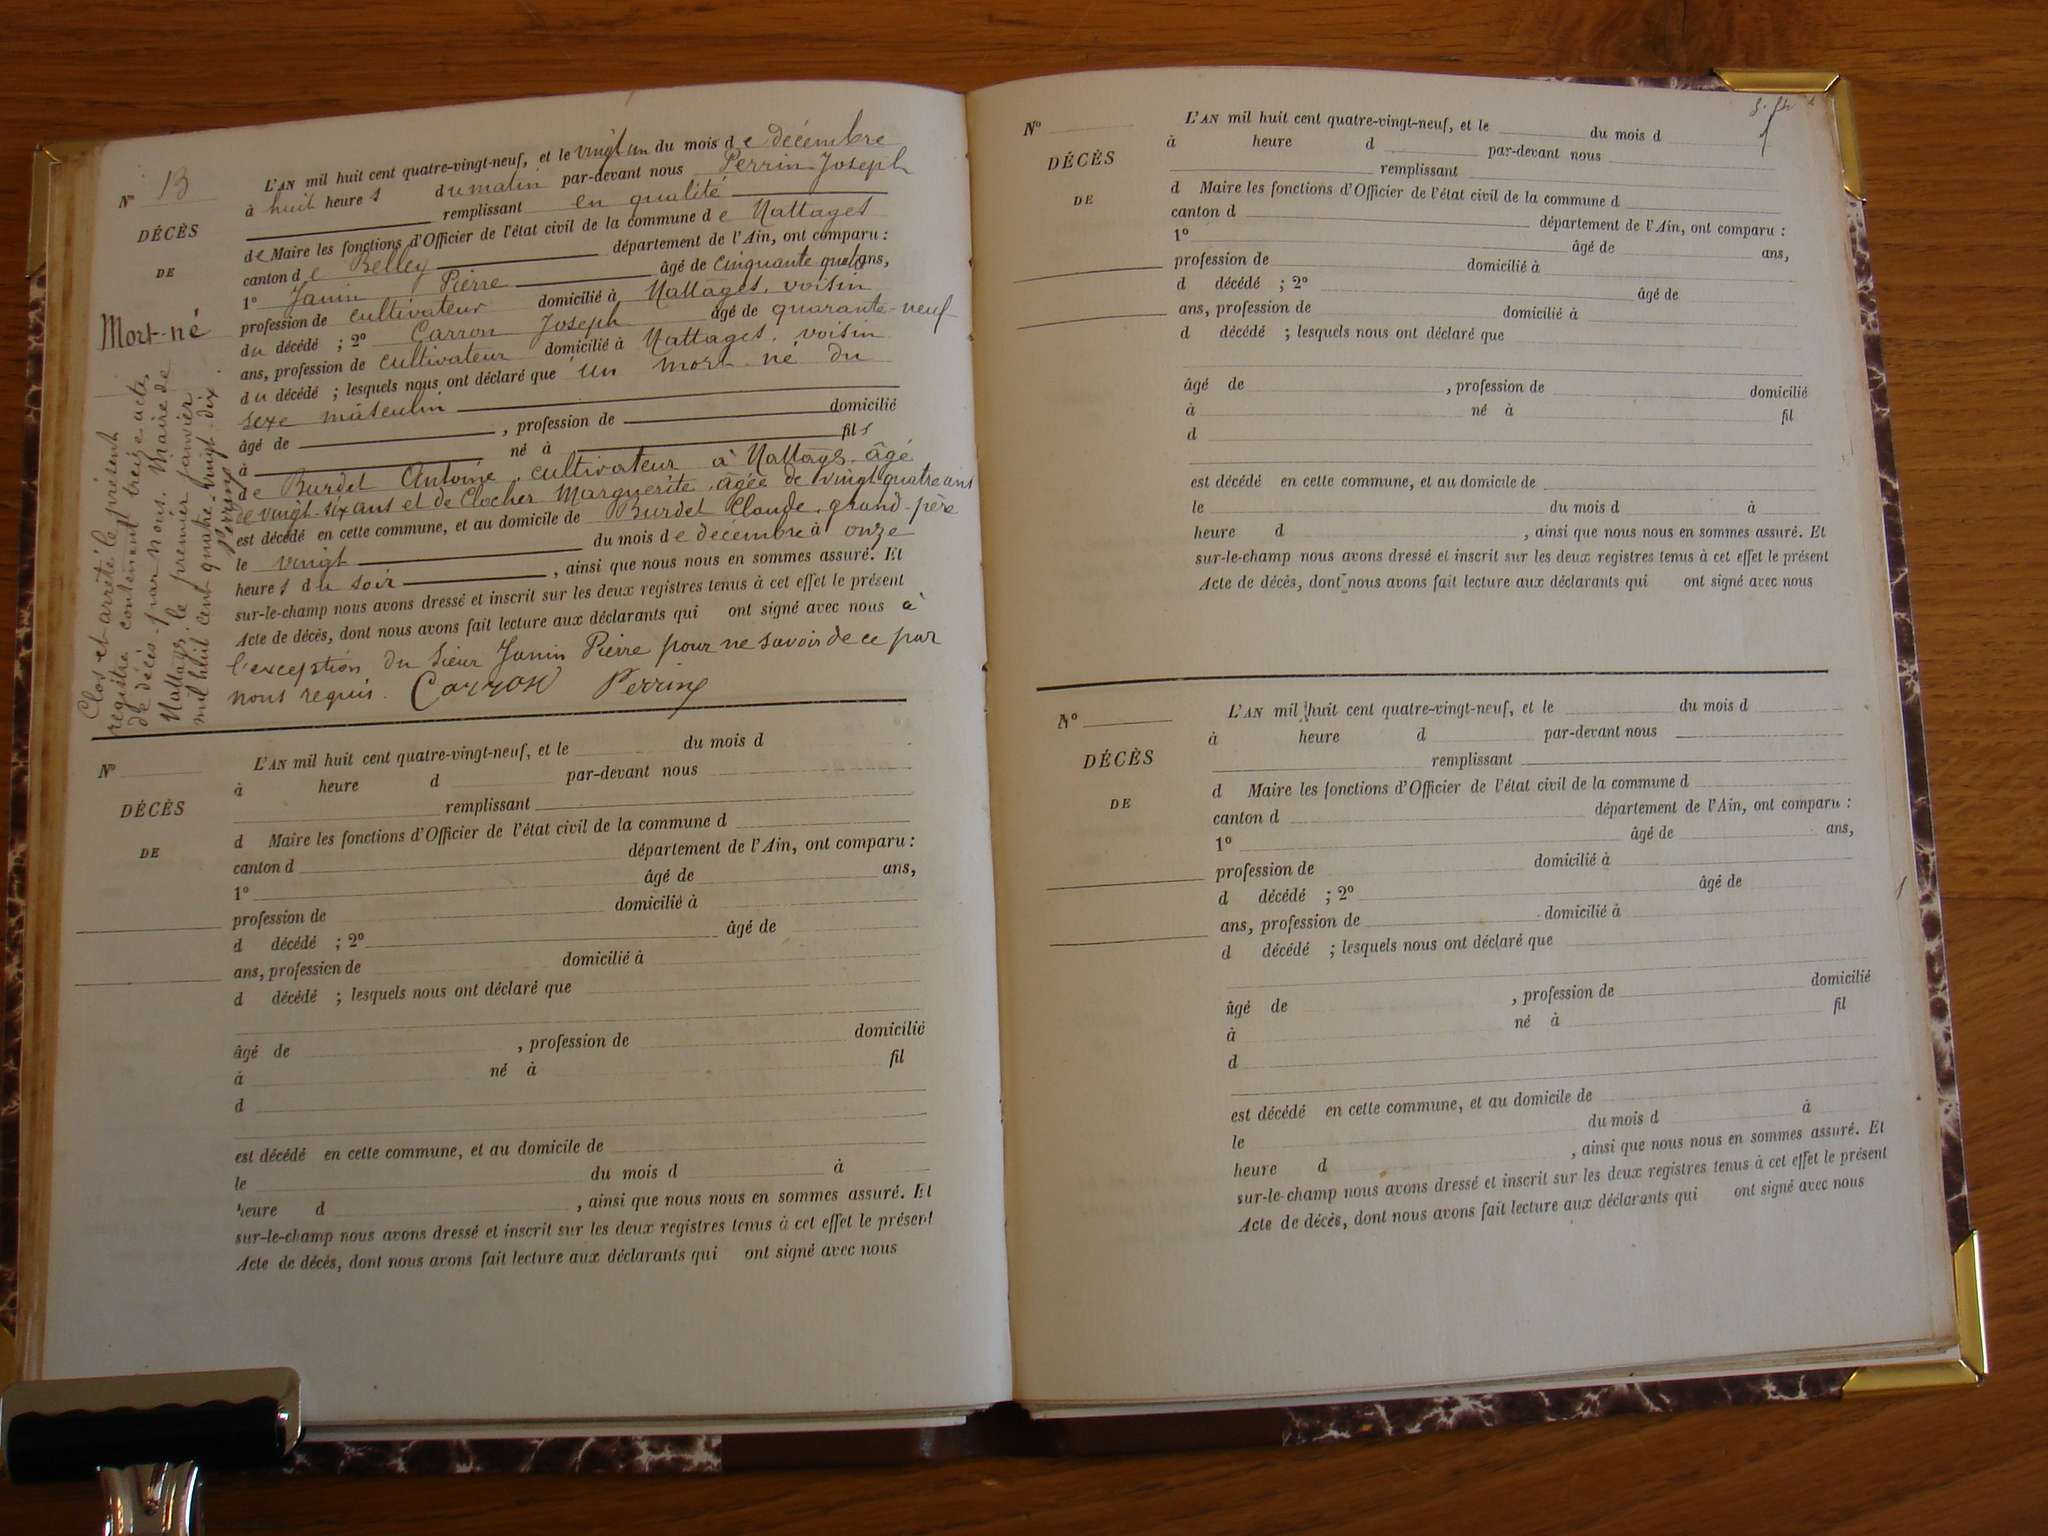 N° 13
DÉCÈS
DE
Mort-né
L'AN mil huit cent quatre-vingt-neuf, et le vingt un du mois de décembre
à huit heures du matin par-devant nous Perrin Joseph
remplissant en qualité
de Maire les fonctions d'Officier de l'état civil de la commune de Nattages
canton de Belley département de l'Ain, ont comparu :
1° Janin Pierre âgé de cinquante ans,
profession de cultivateur domicilié à Nattages, voisin
du décédé ; 2° Carron Joseph âgé de quarante-neuf
ans, profession de cultivateur domicilié à Nattages, voisin
du décédé ; lesquels nous ont déclaré que un mort né du
sexe masculin
âgé de , profession de domicilié
à né à fils
de Burdet Antoine, cultivateur à Nattages, âgé
de vingt-six ans et de Clocher Marguerite, âgée de vingt quatre ans
est décédé en cette commune, et au domicile de Burdet Claude, grand-père
le vingt du mois de décembre à onze
heures du soir , ainsi que nous nous en sommes assuré. Et
sur-le-champ nous avons dressé et inscrit sur les deux registres tenus à cet effet le présent
Acte de décès, dont nous avons fait lecture aux déclarants qui ont signé avec nous à
l'exception du sieur Janin Pierre pour ne savoir de ce par
nous requis. Carron Perrin
Clos et arrêté le présent
registre contenant treize actes
de décès par nous, Maire de
Nattages, le premier janvier
mil huit cent quatre-vingt-dix.
Perrin
N°
DÉCÈS
DE
L'AN mil huit cent quatre-vingt-neuf, et le du mois d
à heure d par-devant nous
remplissant
d Maire les fonctions d'Officier de l'état civil de la commune d
canton d département de l'Ain, ont comparu :
1° âgé de ans,
profession de domicilié à
d décédé ; 2° âgé de
ans, profession de domicilié à
d décédé ; lesquels nous ont déclaré que
âgé de , profession de domicilié
à né à fil
d
est décédé en cette commune, et au domicile de
le du mois d à
heure d , ainsi que nous nous en sommes assuré. Et
sur-le-champ nous avons dressé et inscrit sur les deux registres tenus à cet effet le présent
Acte de décès, dont nous avons fait lecture aux déclarants qui ont signé avec nous
N°
DÉCÈS
DE
L'AN mil huit cent quatre-vingt-neuf, et le du mois d
à heure d par-devant nous
remplissant
d Maire les fonctions d'Officier de l'état civil de la commune d
canton d département de l'Ain, ont comparu :
1° âgé de ans,
profession de domicilié à
d décédé ; 2° âgé de
ans, profession de domicilié à
d décédé ; lesquels nous ont déclaré que
âgé de , profession de domicilié
à né à fil
d
est décédé en cette commune, et au domicile de
le du mois d à
heure d , ainsi que nous nous en sommes assuré. Et
sur-le-champ nous avons dressé et inscrit sur les deux registres tenus à cet effet le présent
Acte de décès, dont nous avons fait lecture aux déclarants qui ont signé avec nous
N°
DÉCÈS
DE
L'AN mil huit cent quatre-vingt-neuf, et le du mois d
à heure d par-devant nous
remplissant
d Maire les fonctions d'Officier de l'état civil de la commune d
canton d département de l'Ain, ont comparu :
1° âgé de ans,
profession de domicilié à
d décédé ; 2° âgé de
ans, profession de domicilié à
d décédé ; lesquels nous ont déclaré que
âgé de , profession de domicilié
à né à fil
d
est décédé en cette commune, et au domicile de
le du mois d à
heure d , ainsi que nous nous en sommes assuré. Et
sur-le-champ nous avons dressé et inscrit sur les deux registres tenus à cet effet le présent
Acte de décès, dont nous avons fait lecture aux déclarants qui ont signé avec nous